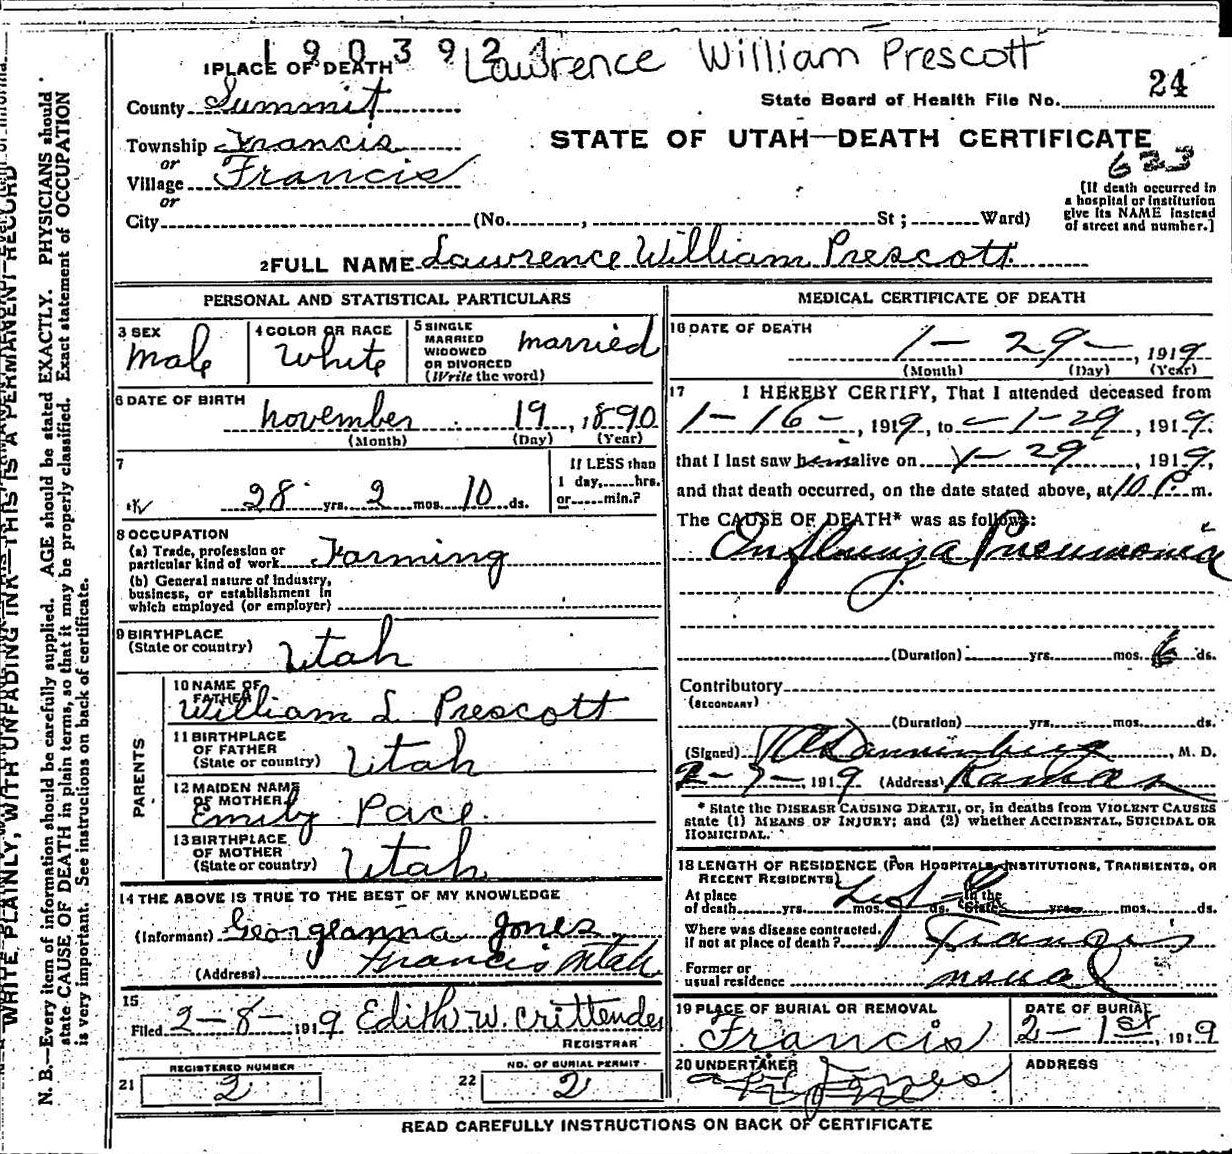 1903924
Lawrence William Prescott
1 PLACE OF DEATH
County Summit
State Board of Health File No. 24
Township Francis
or
Village Francis
or
STATE OF UTAH—DEATH CERTIFICATE
623
City (No. , St ; Ward)
[If death occurred in
a hospital or institution
give its NAME instead
of street and number.]
2 FULL NAME Lawrence William Prescott
PERSONAL AND STATISTICAL PARTICULARS
3 SEX
Male
4 COLOR OR RACE
White
5 SINGLE
MARRIED
WIDOWED
OR DIVORCED
(Write the word)
married
6 DATE OF BIRTH
november 19, 1890
(Month) (Day) (Year)
7
28 yrs. 2 mos. 10 ds.
If LESS than
1 day, hrs.
or min.?
8 OCCUPATION
(a) Trade, profession or
particular kind of work Farming
(b) General nature of industry,
business, or establishment in
which employed (or employer)
9 BIRTHPLACE
(State or country) Utah
PARENTS
10 NAME OF
FATHER
William L Prescott
11 BIRTHPLACE
OF FATHER
(State or country) Utah
12 MAIDEN NAME
OF MOTHER
Emily Pace
13 BIRTHPLACE
OF MOTHER
(State or country) Utah
14 THE ABOVE IS TRUE TO THE BEST OF MY KNOWLEDGE
(Informant) Georgeanna Jones
(Address) Francis Utah
15
Filed 2-8-1919 Edith W. Crittenden
REGISTRAR
REGISTERED NUMBER
21 2
NO. OF BURIAL PERMIT
22 2
MEDICAL CERTIFICATE OF DEATH
16 DATE OF DEATH
1-29-, 1919
(Month) (Day) (Year)
17 I HEREBY CERTIFY, That I attended deceased from
1-16-, 1919, to 1-29, 1919.
that I last saw him alive on 1-29, 1919,
and that death occurred, on the date stated above, at 10 P. m.
The CAUSE OF DEATH* was as follows:
Influenza Pneumonia
(Duration) yrs. mos. 6 ds.
Contributory
(SECONDARY)
(Duration) yrs. mos. ds.
(Signed) Dannenberg, M. D.
2-7-1919 (Address) Kamas
* State the DISEASE CAUSING DEATH, or, in deaths from VIOLENT CAUSES
state (1) MEANS OF INJURY; and (2) whether ACCIDENTAL, SUICIDAL OR
HOMICIDAL.
18 LENGTH OF RESIDENCE (FOR HOSPITALS, INSTITUTIONS, TRANSIENTS, OR
RECENT RESIDENTS)
At place
of death yrs. mos. ds.
In the
State yrs. mos. ds.
Life
Where was disease contracted.
if not at place of death? Francis
Former or
usual residence usual
19 PLACE OF BURIAL OR REMOVAL
Francis
DATE OF BURIAL
2-1st, 1919
20 UNDERTAKER
Jones
ADDRESS
READ CAREFULLY INSTRUCTIONS ON BACK OF CERTIFICATE
WRITE PLAINLY, WITH UNFADING INK—THIS IS A PERMANENT RECORD
N. B.—Every item of information should be carefully supplied. AGE should be stated EXACTLY. PHYSICIANS should
state CAUSE OF DEATH in plain terms, so that it may be properly classified. Exact statement of OCCUPATION
is very important. See instructions on back of certificate.